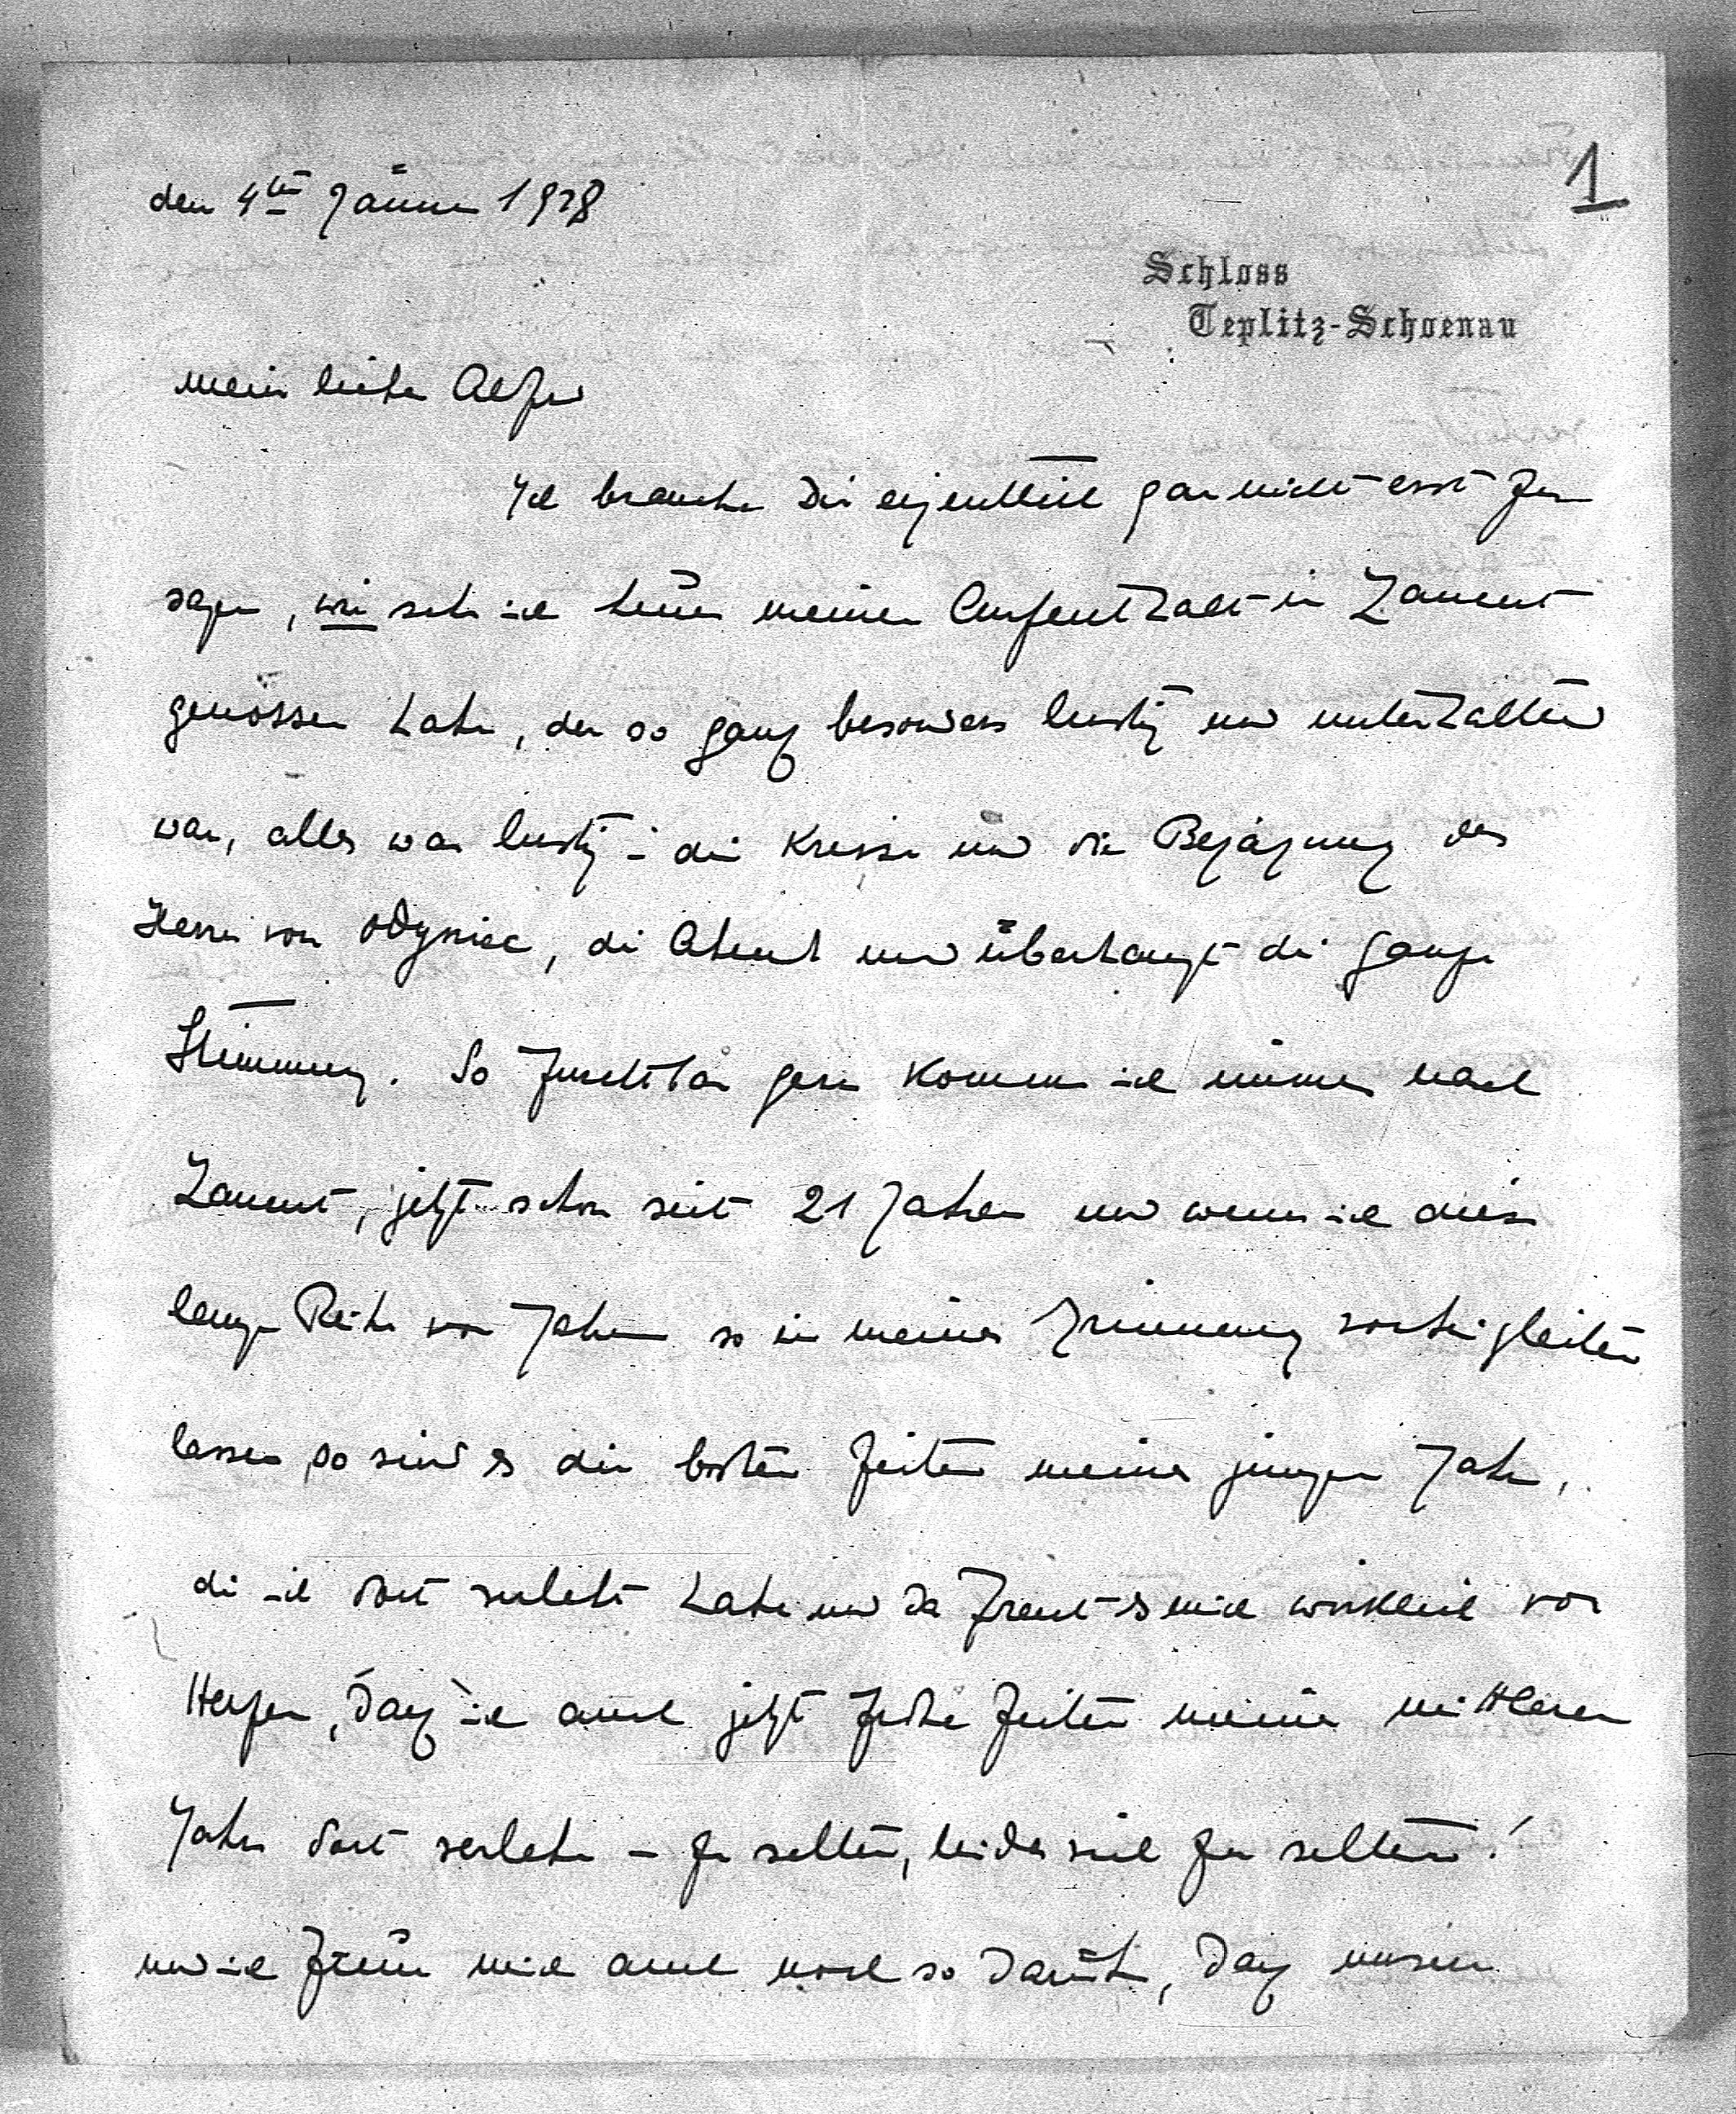 1
den 4ten Jänner 1928
Schloss
Teplitz-Schoenau
mein lieber Alfred
Ich brauche Dir eigentlich gar nicht erst zu
sagen, wie sehr ich heuer meinen Aufenthalt in Lancut
genossen habe, der so ganz besonders lustig und unterhaltend
war, alles war lustig – die Kreise und die Bejagung des
Herrn von Odyniec, die Abende und überhaupt die ganze
Stimmung. So furchtbar gern komme ich immer nach
Lancut, jetzt schon seit 21 Jahren und wenn ich diese
lange Reihe von Jahren so in meiner Erinnerung vorbeigleiten
lasse, so sind es die besten Zeiten meiner jungen Jahre,
die ich dort verlebt habe und da freut es mich wirklich von
Herzen, daß ich auch jetzt frohe Zeiten meiner mittleren
Jahre dort verlebe – zu selten, leider viel zu selten!
und ich freue mich auch noch so darüber, daß unsere